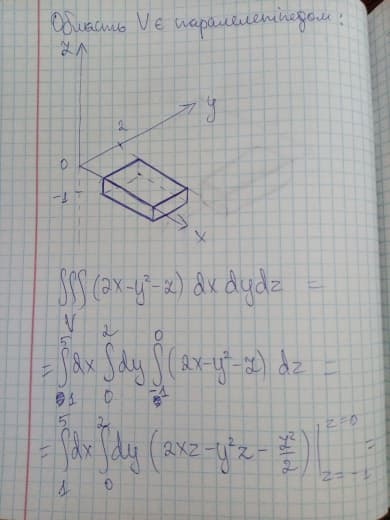 Область V є паралелепіпедом:
z
y
2
0
-1
x
∭(2x-y²-z) dx dy dz =
V
= ∫₁⁵dx ∫₀²dy ∫₋₁⁰(2x-y²-z) dz =
= ∫₁⁵dx ∫₀²dy (2xz-y²z- z²/2) |z=0 z=-1 =